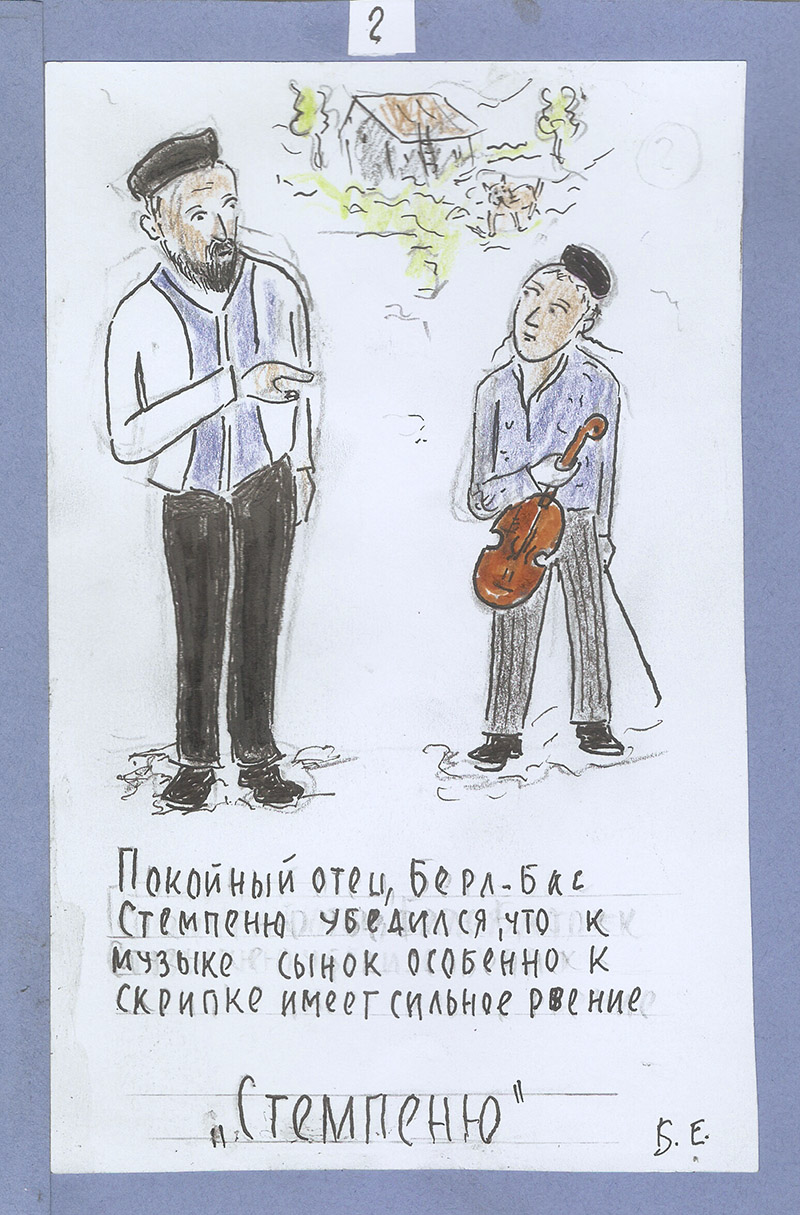 2
2
Покойный отец, Берл-бас
Стемпеню убедился, что к
музыке сынок особенно к
скрипке имеет сильное рвение
„Стемпеню"
Б. Е.